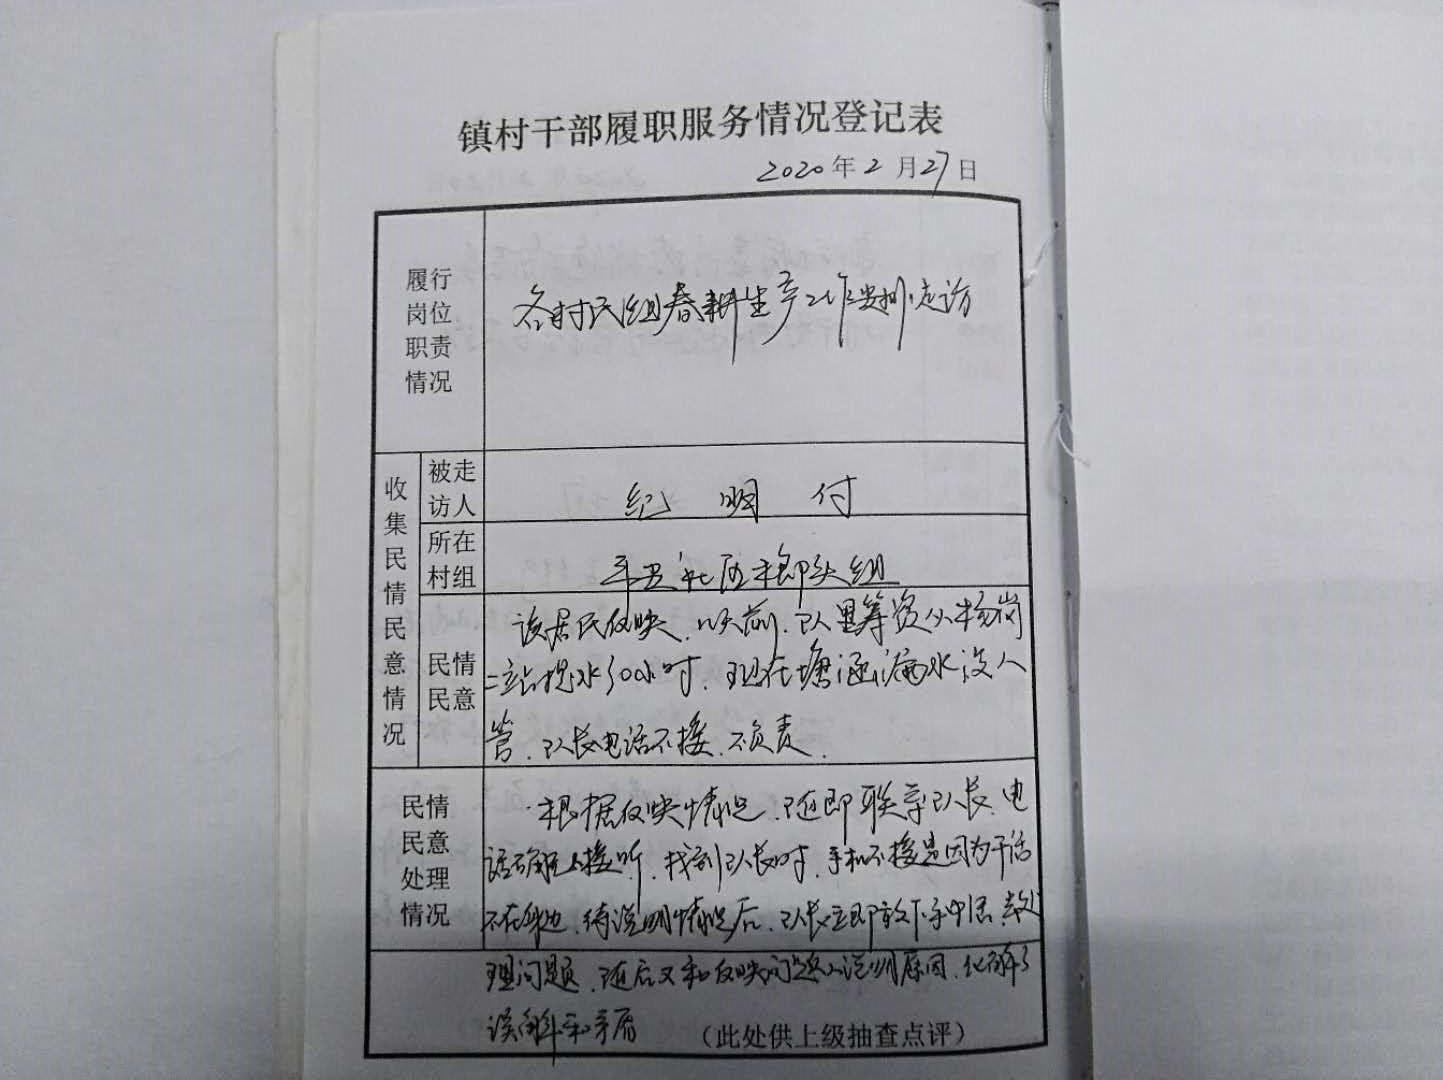 镇村干部履职服务情况登记表
2020年2月27日
履行
岗位
职责
情况
各村民组春耕生产工作安排.走访
收集民情民意情况
被走
访人
纪明付
所在
村组
社区郎头组
民情
民意
该居民反映.以前.队里筹资从杨岗
二站提水30小时.现在塘涵漏水没人
管.队长电话不接.不负责.
民情
民意
处理
情况
根据反映情况.随即联系队长.电
话确无人接听.找到队长时.手机不接是因为干活
不在身边.待说明情况后.队长立即放下手中活去处
理问题.随后又和反映问题人说明原因.化解了
误解和矛盾
（此处供上级抽查点评）